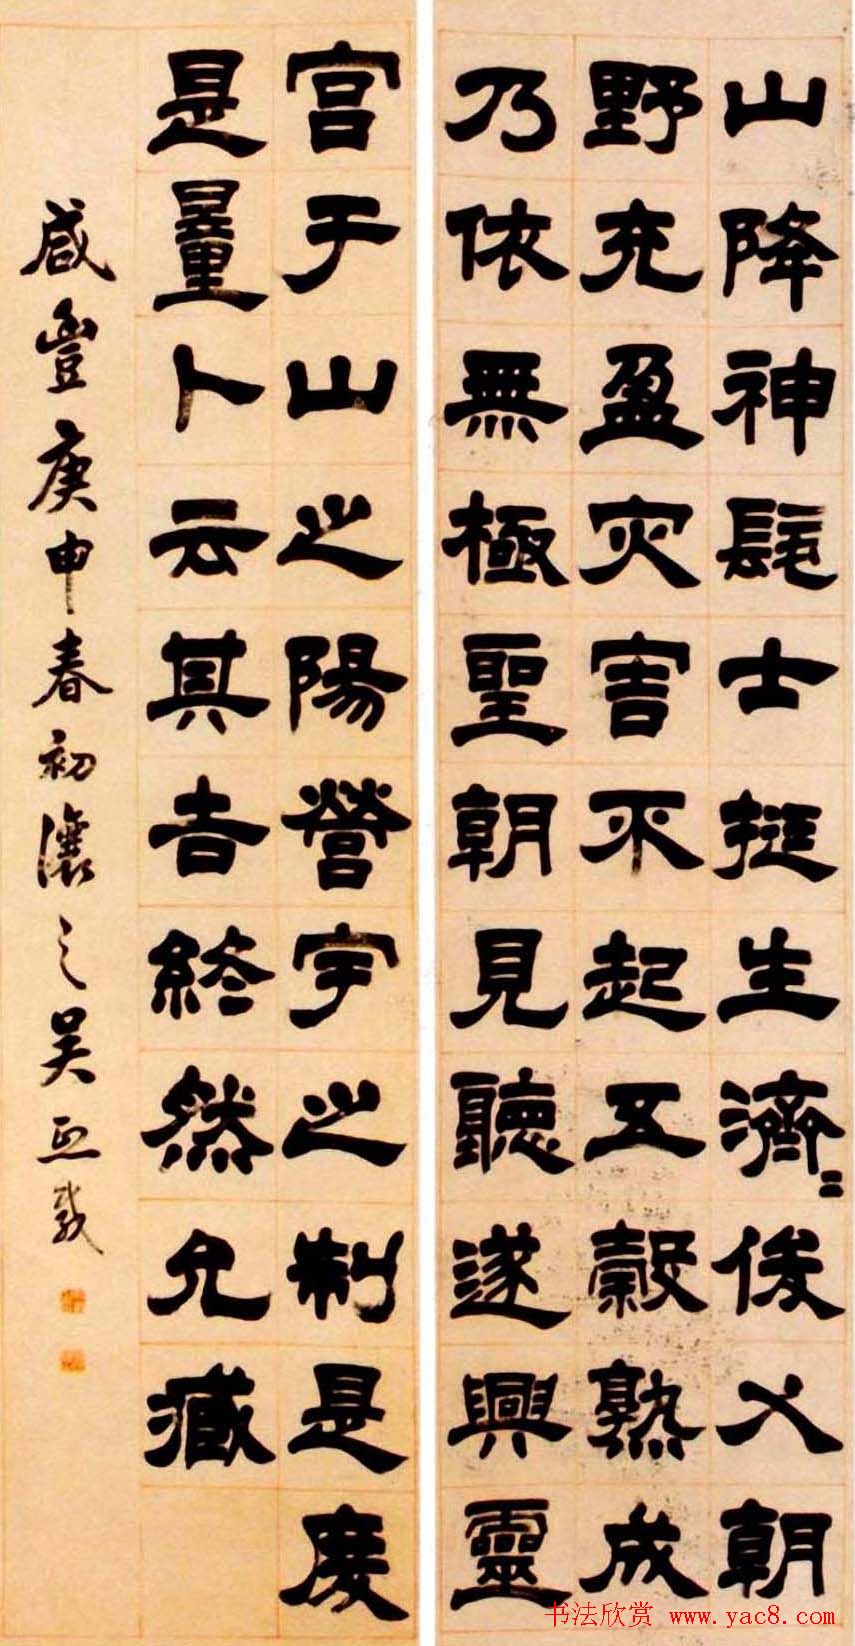 山降神髦士挺生濟〻俊乂朝
野充盈灾害不起五穀熟成
乃依無極聖朝見聽遂興靈
宫于山之陽營宇之制是度
是量卜云其吉終然允臧
咸豐庚申春初瀼之吴熙載
书法欣赏 www.yac8.com